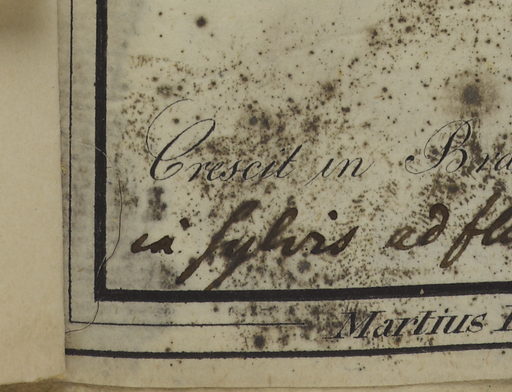 Crescit in Bra
in sylvis ad flu
Martius